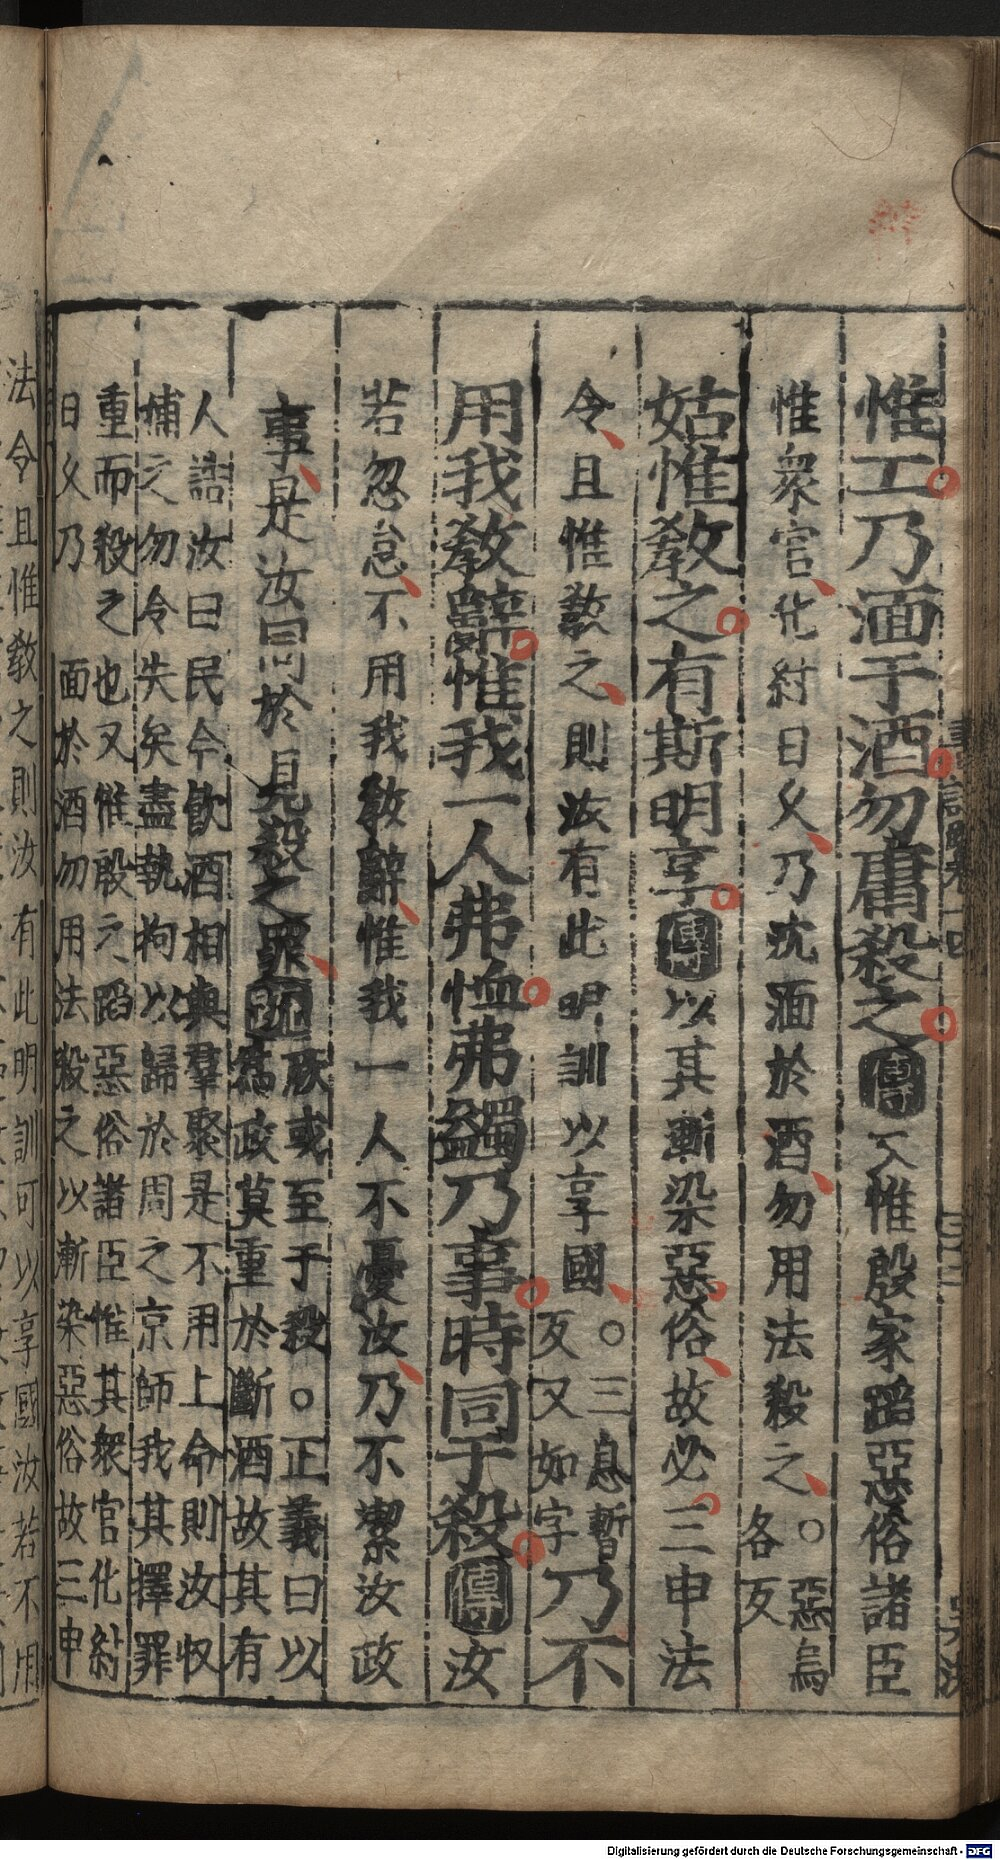 惟工乃湎于酒勿庸殺之傳又惟殷家蹈惡俗諸臣
惟衆官化紂日久乃沈湎於酒勿用法殺之○惡烏
各反
姑惟教之有斯明享傳以其漸染惡俗故必三申法
令且惟敎之則汝有此明訓以享國○三息暫
反又如字
乃不
用我教辭惟我一人弗恤弗蠲乃事時同于殺傳汝
若忽怠不用我教辭惟我一人不憂汝乃不潔汝政
事是汝同於見殺之罪疏
放或至于殺○正義曰以
爲政莫重於斷酒故其有
人誥汝曰民今飲酒相與羣聚是不用上命則汝收
捕之勿令失矣盡執拘以歸於周之京師我其擇罪
重而殺之也又惟殷之蹈惡俗諸臣惟其衆官化紂
日久乃 湎於酒勿用法殺之以漸染惡俗故三申
法令且惟敎之則汝有此明訓可以享國汝若不用
Digitalisierung gefördert durch die Deutsche Forschungsgemeinschaft - DFG